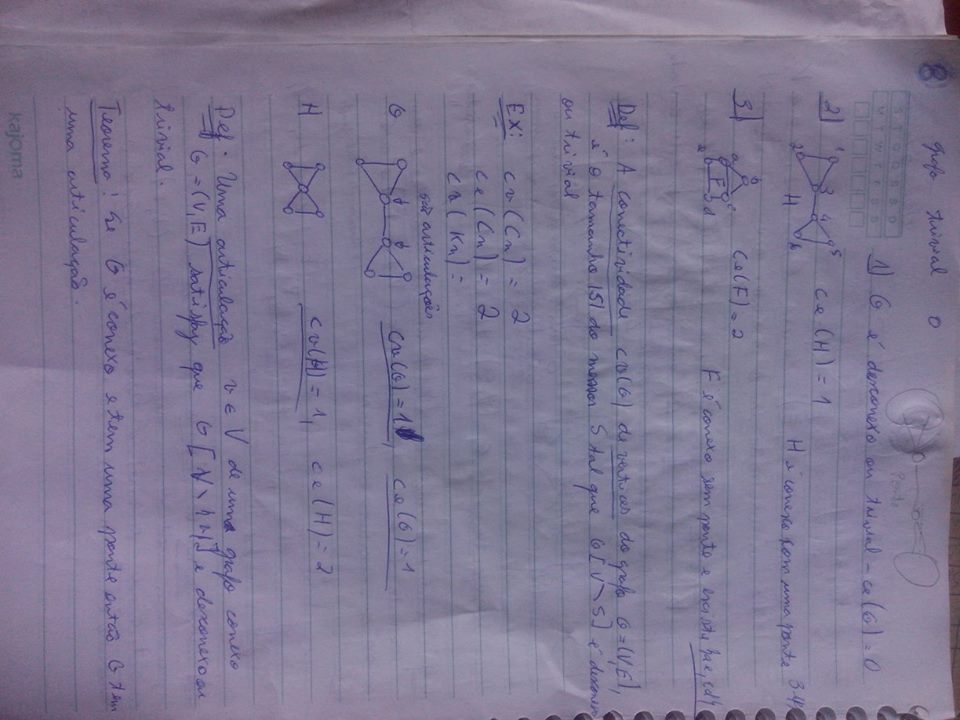 8) grafo trivial 0
1) G é desconexo ou trivial - ce(G) = 0
2) 1 2 3 4 5 6 H ce(H) = 1 H é conexo com uma ponte 34
3) a b c d e F ce(F) = 2 F é conexo sem ponte e existe {ae, cd}
Def: A conectividade cv(G) de vertices do grafo G = (V, E),
é o tamanho |S| do menor S tal que G[V \ S] é desconexo
ou trivial
EX: cv(Cn) = 2
ce(Cn) = 2
cv(Kn) =
são articulações
G cv(G) = 1, ce(G) = 1
H cv(H) = 1, ce(H) = 2
Def. Uma articulação v ∈ V de um grafo conexo
G = (V, E) satisfaz que G[V \ {v}] é desconexo ou
trivial.
Teorema: Se G é conexo e tem uma ponte então G tem
uma articulação.
kajoma